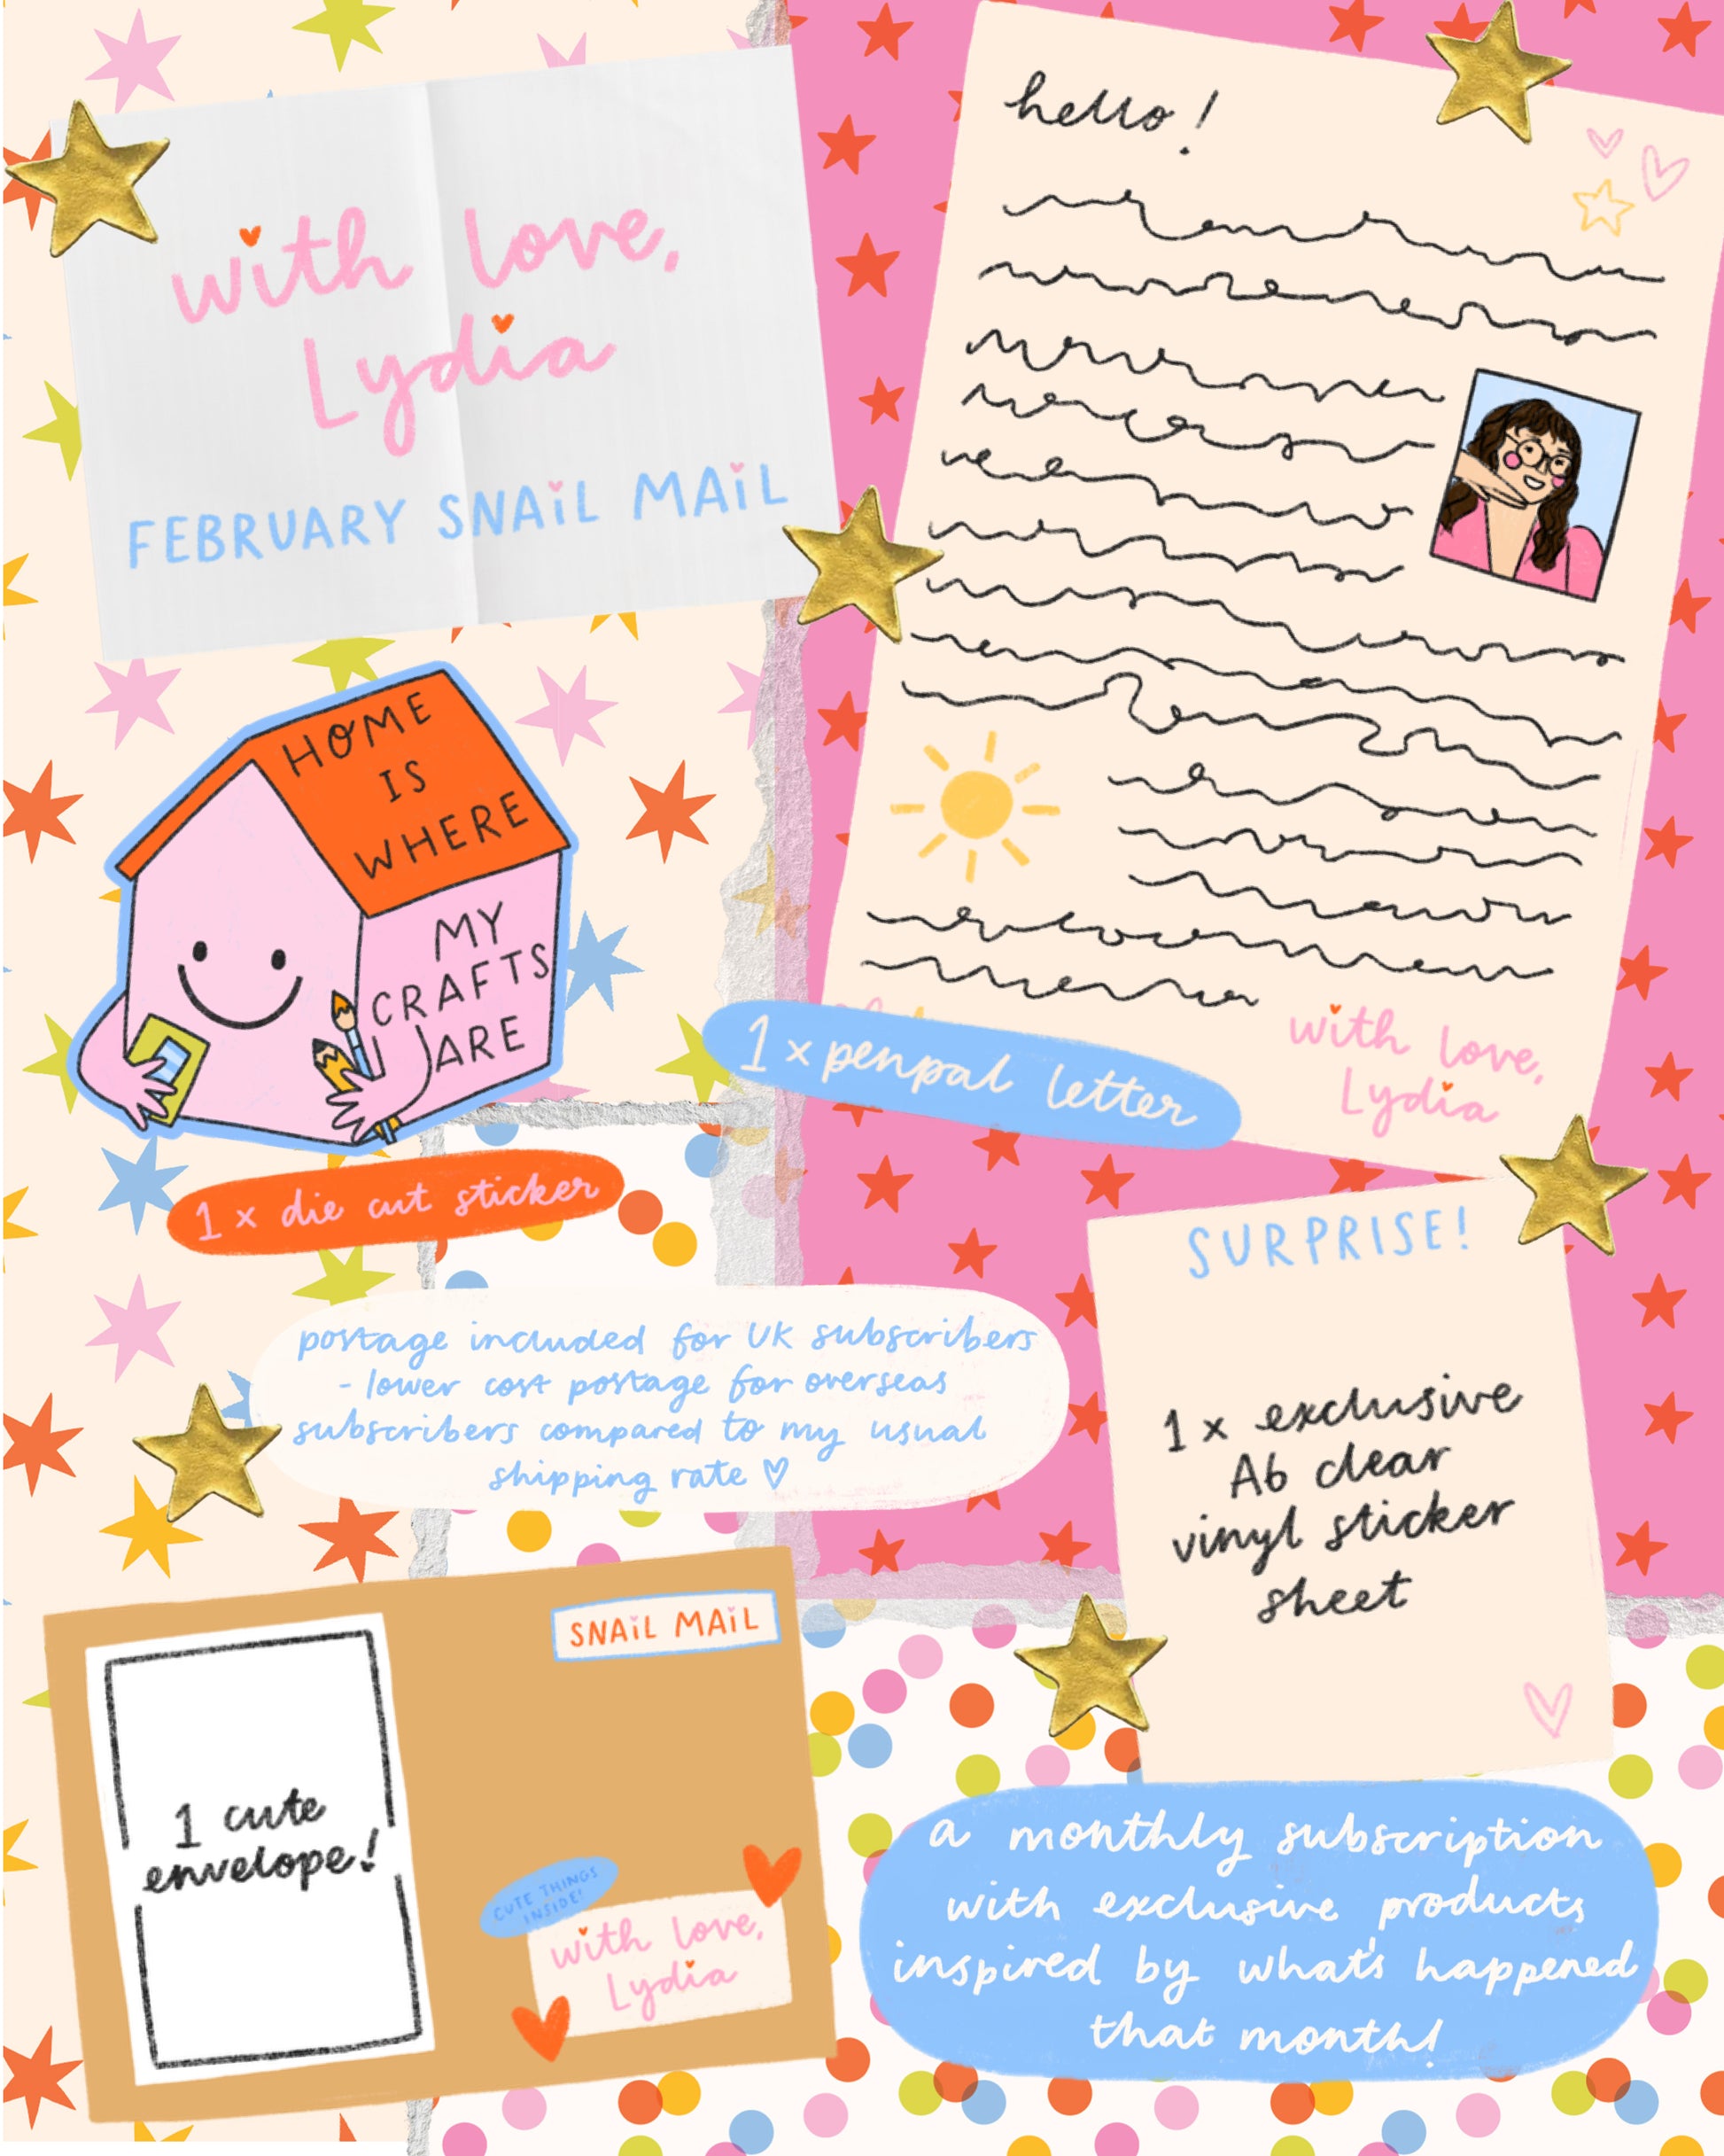 with love,
Lydia
FEBRUARY SNAiL MAiL
hello!
with love,
Lydia
1 x penpal letter
HOME
IS
WHERE
MY
CRAFTS
ARE
1 x die cut sticker
postage included for UK subscribers
- lower cost postage for overseas
subscribers compared to my usual
shipping rate ♡
SURPRISE!
1 x exclusive
A6 clear
vinyl sticker
sheet
SNAiL MAiL
1 cute
envelope!
CUTE THINGS
INSIDE!
with love,
Lydia
a monthly subscription
with exclusive products
inspired by what's happened
that month!